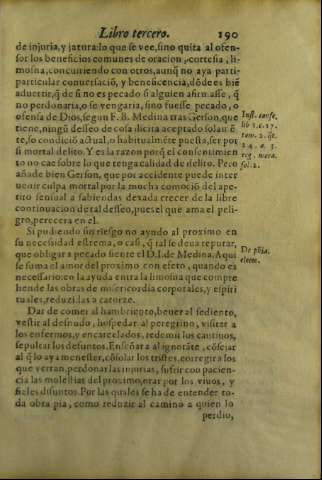 Libro tercero. 190
de injuria, y jatura: lo que se vee, sino quita al ofen-
sor los beneficios comunes de oracion, cortesia, li-
mosna, concurriendo con otros, aunq̃ no aya parti-
particular conuersaciõ, y beneuicencia, dõde es biẽ
aduertir, q̃ de si no es pecado si alguien afirmasse, q̃
no perdonaria, o se vengaria, sino fuesse pecado, o
ofensa de Dios, segun F. B. Medina tras Gerson, que
tiene, ningũ desseo de cosa ilicita aceptado solau ẽ
te, so condiciõ actual, o habitualmẽte puesta, ser por
si mortal delito. Y es la razon porq̃ el consentimien
to no cae sobre lo que tenga calidad de delito. Pero
añade bien Gerson, que por accidente puede inter
uenir culpa mortal por la mucha comoció del ape-
tito sensual a sabiendas dexada crecer de la libre
continuacion de tal desseo, pues el que ama el peli-
gro, perecera en el.
Inst. confes,
lib 1. c. 17.
tom. 2. q̃t.
2 4. a. 3.
reg. mora.
fol. 2.
Si pudiendo sin riesgo no ayudo al proximo en
su necessidad estrema, o casi, q̃ tal se deua reputar,
que obligar a pecado siente el D. I. de Medina. Aqui
se suma el amor del proximo con efeto, quando es
necessario: en la ayuda entra la limosna que compre
hende las obras de misericordia corporales, y espiri
tuales, reduzidas a catorze.
De p̃ña.
eleem.
Dar de comer al hambriento, beuer al sediento,
vestir al desnudo, hospedar al peregrino, visitar a
los enfermos, y encarcelados, redemir los cautiuos,
sepultar los defuntos. Enseñar a al ignorãte, cõsejar
al q̃ lo aya menester, cõsolar los tristes, corregir a los
que yerran, perdonar las injurias, sufrir con pacien-
cia las molestias del proximo, orar por los viuos, y
fieles difuntos. Por las quales se ha de entender to-
da obra pia, como reduzir al camino a quien lo
perdio,